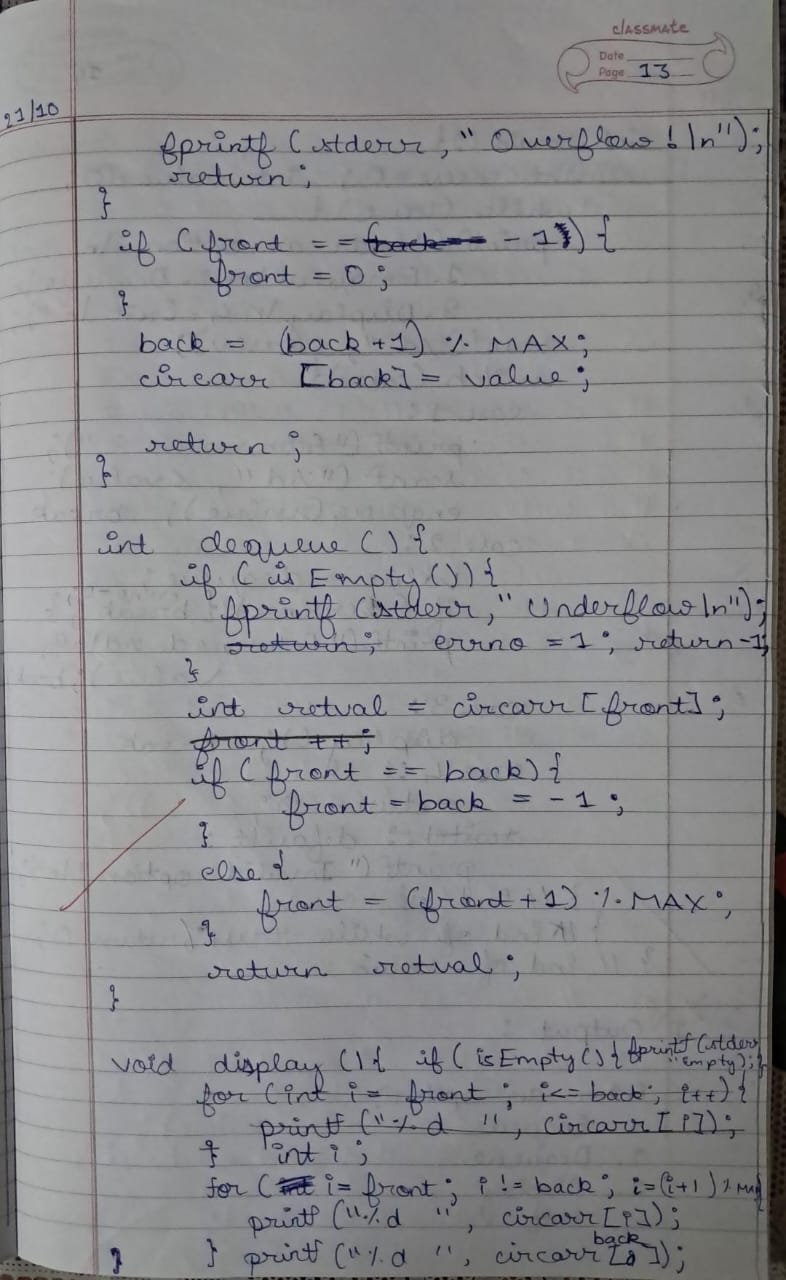 classmate
Date
Page 13
21/10
fprintf (stderr, " Overflow! \n");
return;
}
if (front == (back == -1)) {
front = 0;
}
back = (back+1) % MAX;
circarr [back] = value;
return;
}
int dequeue () {
if (isEmpty ()) {
fprintf (stderr, " Underflow \n");
return; errno = 1; return -1;
}
int retval = circarr [front];
front ++;
if (front == back) {
front = back = -1;
}
else {
front = (front+1) % MAX;
}
return retval;
}
void display () { if (isEmpty () { fprintf (stderr
"empty); }
for (int i = front; i <= back; i++) {
printf ("%d ", circarr [i]);
} int i;
for (int i = front; i != back; i=(i+1) % MAX
printf ("%d ", circarr [i]);
back
} } printf ("%d ", circarr [ ]);